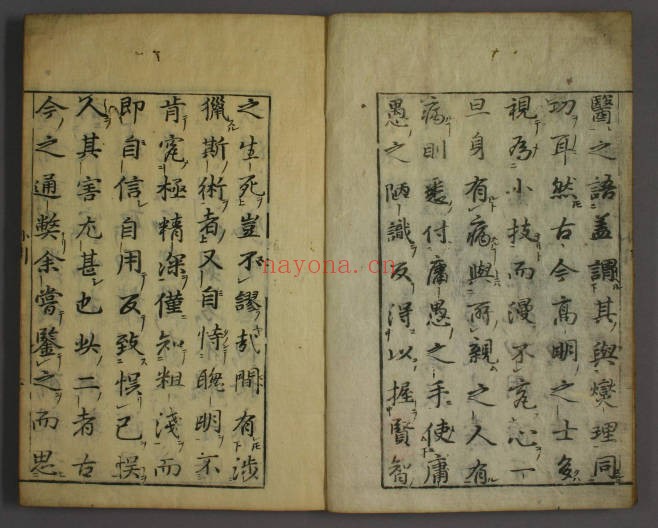 醫之語蓋謂其與燮理同
功耳然古今高明之士多
視為小技而漫不究心一
旦身有病與所親之人有
病則悉付庸愚之手使庸
愚之陋識反得以握賢智
之生死豈不謬哉間有涉
獵斯術者又自恃聰明不
肯究極精深僅知粗淺而
即自信自用反致悞己悞
人其害尤甚也此二者古
今之通弊余嘗鑒之而思
nayona.cn